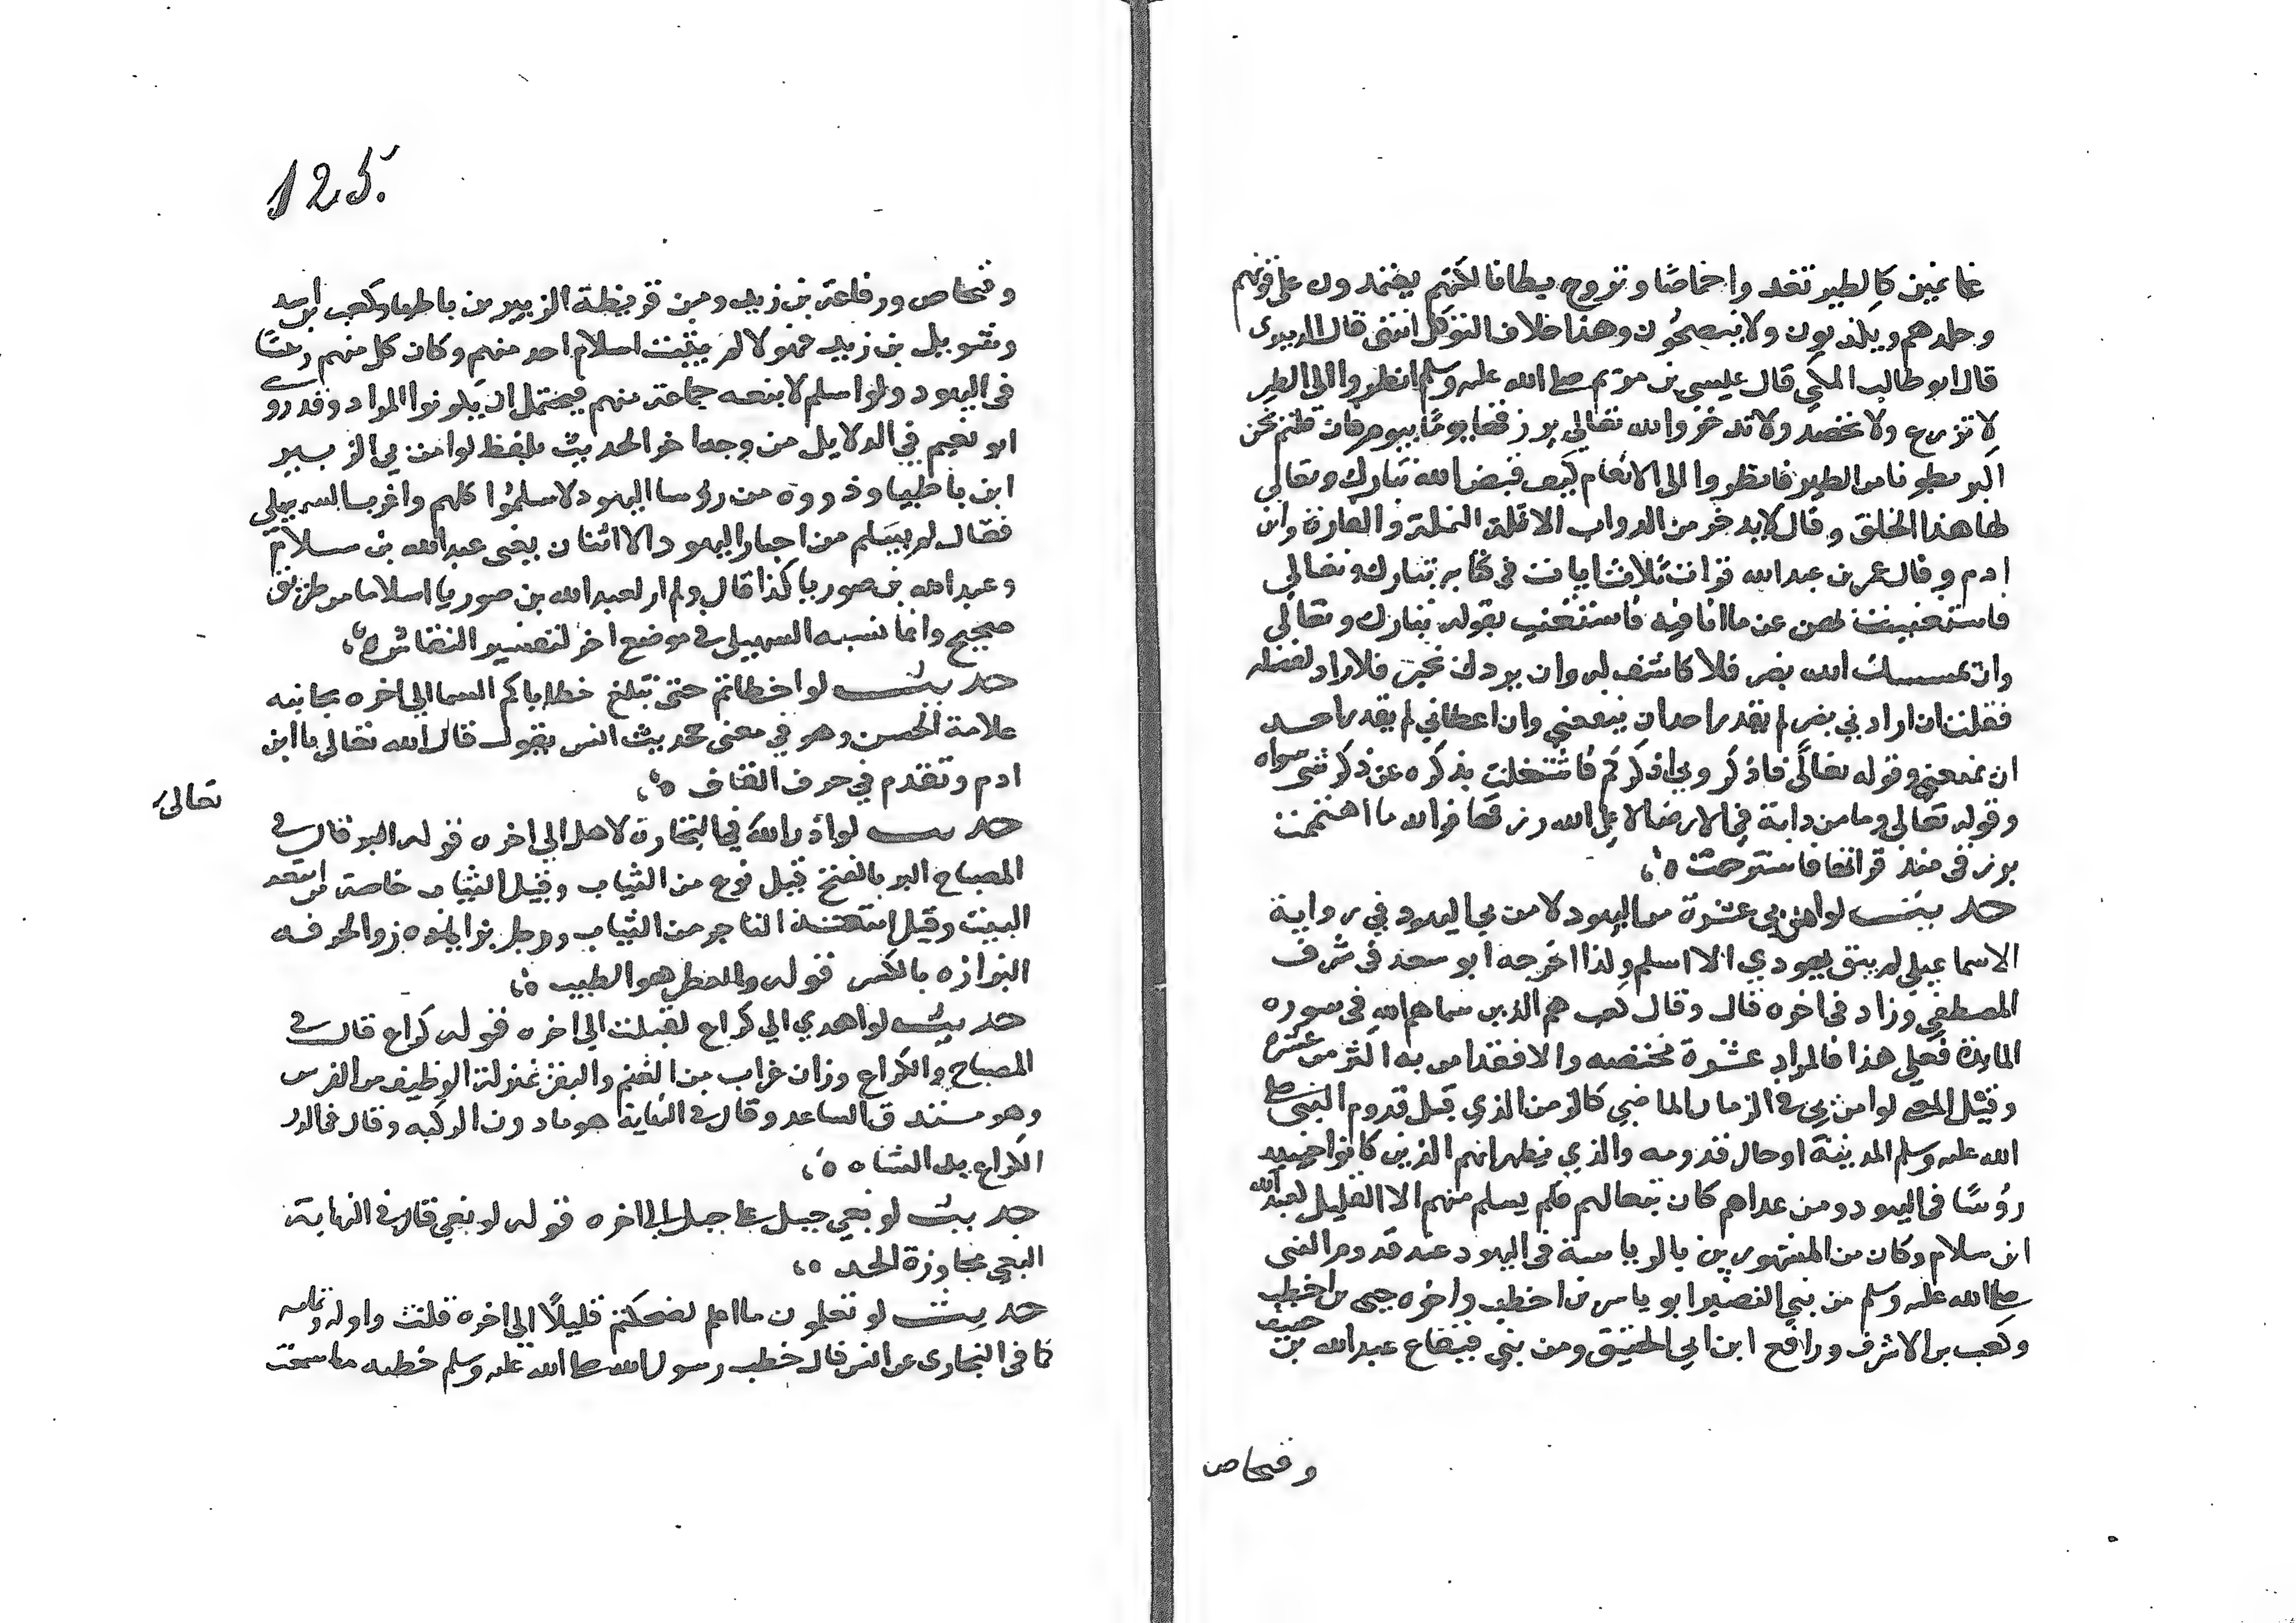 غانمين كالطير تغدوا خماصًا وتروح بطانا لكنهم يعتمدون على قوتهم
وجلدهم ويكذبون ولا ينصحُون وهذا خلاف التوكل انتهى قال الدميرى
قال ابو طالب المكي قال عيسى بن مريم صلى الله عليه وسلم انظروا الى الطير
لا تزرع ولا تحصد ولا تدخر والله تعالى يرزقها يومًا بيوم فان قلتم نحن
اكبر بطونا من الطير فانظروا الى الانعام كيف قيض الله تبارك وتعالى
لها هذا الخلق وقال لا يدخر من الدواب الا ثلاثة النملة والفارة وابن
ادم وقال عمر بن عبد الله قرات ثلاث ايات في كتابه تبارك وتعالى
فاستغنيت بهن عن ما انا فيه فاستغنيت بقوله تبارك وتعالى
وان يمسسك الله بضر فلا كاشف له وان يردك بخير فلا راد لفضله
فقلت ان اراد بي بضر لم يقدر احد ان ينفعني وان اعطاني لم يقدر احد
ان يمنعني وقوله تعالى فاذكروني اذكركم فاشتغلت بذكره عن ذكر شى سواه
وقوله تعالى وما من دابة في الارض الا على الله رزقها فوالله ما اهتممت
برزقى منذ قراتها فاسترحت ٥
حديث لو امن بي عشرة من اليهود لامن بي اليهود في رواية
الاسماعيلي لم يبق يهودي الا اسلم ولذا اخرجه ابو سعد في شرف
المصطفي وزاد فى اخره قال وقال كعب هم الذين سماهم الله فى سوره
المايدة فعلي هذا فالمراد عشرة مختصه والا فقد امن به اكثر من عشرة
وقيل المعنى لو امن بي فى الزمان الماضي كالزمن الذي قبل قدوم النبي صلى
الله عليه وسلم المدينة او حال قدومه والذي يظهر انهم الذين كانوا حينيد
رؤسًا فى اليهود ومن عداهم كان تبعا لهم فلم يسلم منهم الا القليل كعبد الله
ابن سلام وكان من المشهورين بالرياسة فى اليهود عند قدوم النبى
صلى الله عليه وسلم من بني النضير ابو ياسر بن اخطب واخوه حيى بن اخطب
وكعب بن الاشرف ورافع ابن ابي الحقيق ومن بني قينقاع عبد الله بن حنيف
وفنحاص
125
وفنحاص ورفاعة بن زيد ومن قريظة الزبير بن باطيا وكعب بن اسد
وشويل بن زيد فهولا لم يثبت اسلام احد منهم وكان كل منهم رئسًا
فى اليهود ولو اسلم لاتبعه جماعة منهم فيحتمل ان يكونوا المراد وقد روى
ابو نعيم في الدلايل من وجه اخر الحديث بلفظ لو امن بي الزبير
ابن باطيا وذووه من رؤسا اليهود لاسلمُوا كلهم واغرب السهيلى
فقال لم يسلم من احبار اليهود الا اثنان يعنى عبد الله بن سلام
وعبد الله بن صوريا كذا قال ولم ار لعبد الله بن صوريا اسلاما من طريق
صحيح وانما نسبه السهيلى فى موضع اخر لتفسير النقاش ٥
حديث لو اخطاتم حتى تبلغ خطاياكم السما الى اخره بجانبه
علامة الحسن وهو في معنى حديث انس يقول قال الله تعالى يا ابن
ادم وتقدم في حرف القاف ٥
تعالى
حديث لو اذن الله في التجارة لاهل الى اخره قوله البز قال فى
المصباح البز بالفتح قيل نوع من الثياب وقيل الثياب خاصة من امتعة
البيت وقيل امتعة التاجر من الثياب ورجل بزاز والحرفه
البزازه بالكسر قوله والعطر هو الطيب ٥
حديث لو اهدي الي كراع لقبلت الى اخره قوله كراع قال فى
المصباح والكراع وزان غراب من الغنم والبقر بمنزلة الوظيف من الفرس
وهو مستدق الساعد وقال فى النهاية هو ما دون الركبه وقال فى الدر
الكراع يد الشاه ٥
حديث لو بغي جبل على جبل الى اخره قوله لو بغي قال فى النهاية
البغي مجاوزة الحد ٥
حديث لو تعلمون ما اعلم لضحكتم قليلًا الى اخره قلت واوله وتمامه
كما فى البخارى عن انس قال خطب رسول الله صلى الله عليه وسلم خطبه ما سمعت